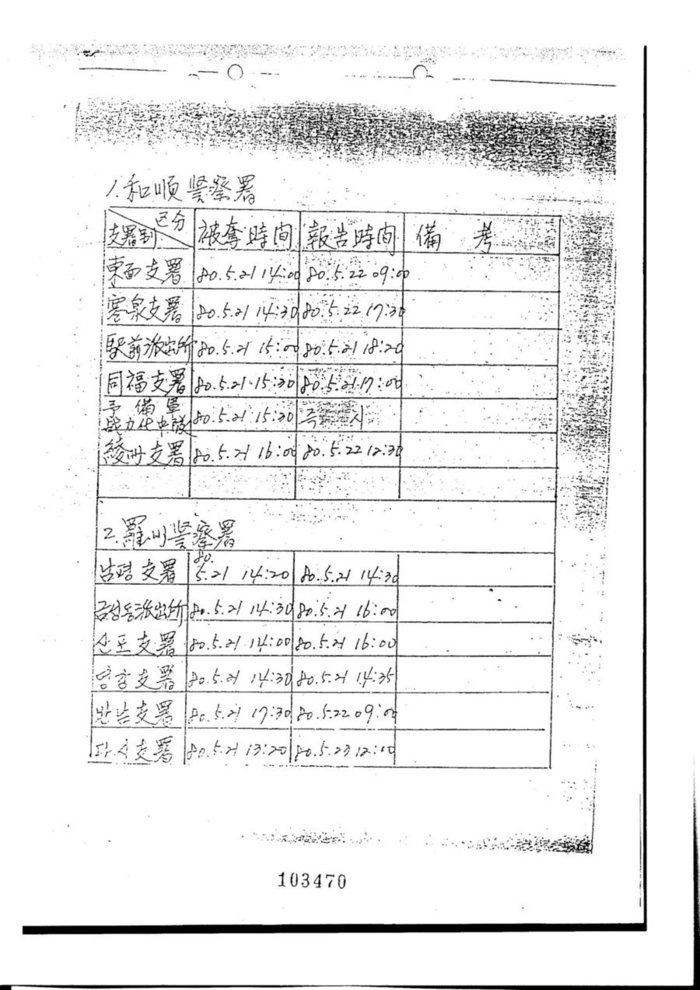 1. 和順警察署
区分
支署别 被奪時間 報告時間 備考
東面支署 80.5.21 14:00 80.5.22 09:00
寒泉支署 80.5.21 14:30 80.5.22 17:30
駅前派出所 80.5.21 15:00 80.5.21 18:20
同福支署 80.5.21 15:30 80.5.21 17:00
予備軍
戦力化中隊 80.5.21 15:30 즉시
綾州支署 80.5.21 16:00 80.5.22 12:30
2. 羅州警察署
남평支署 80. 5.21 14:20 80.5.21 14:30
금성동派出所 80.5.21 14:30 80.5.21 16:00
산포支署 80.5.21 14:00 80.5.21 16:00
영강支署 80.5.21 14:30 80.5.21 14:35
반남支署 80.5.21 17:30 80.5.22 09:00
다시支署 80.5.21 13:20 80.5.23 12:10
103470